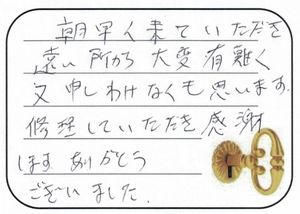 朝早く来ていただき
遠い所から 大変有難く
又申しわけなくも思います。
修理していただき感謝
します ありがとう
ございました.